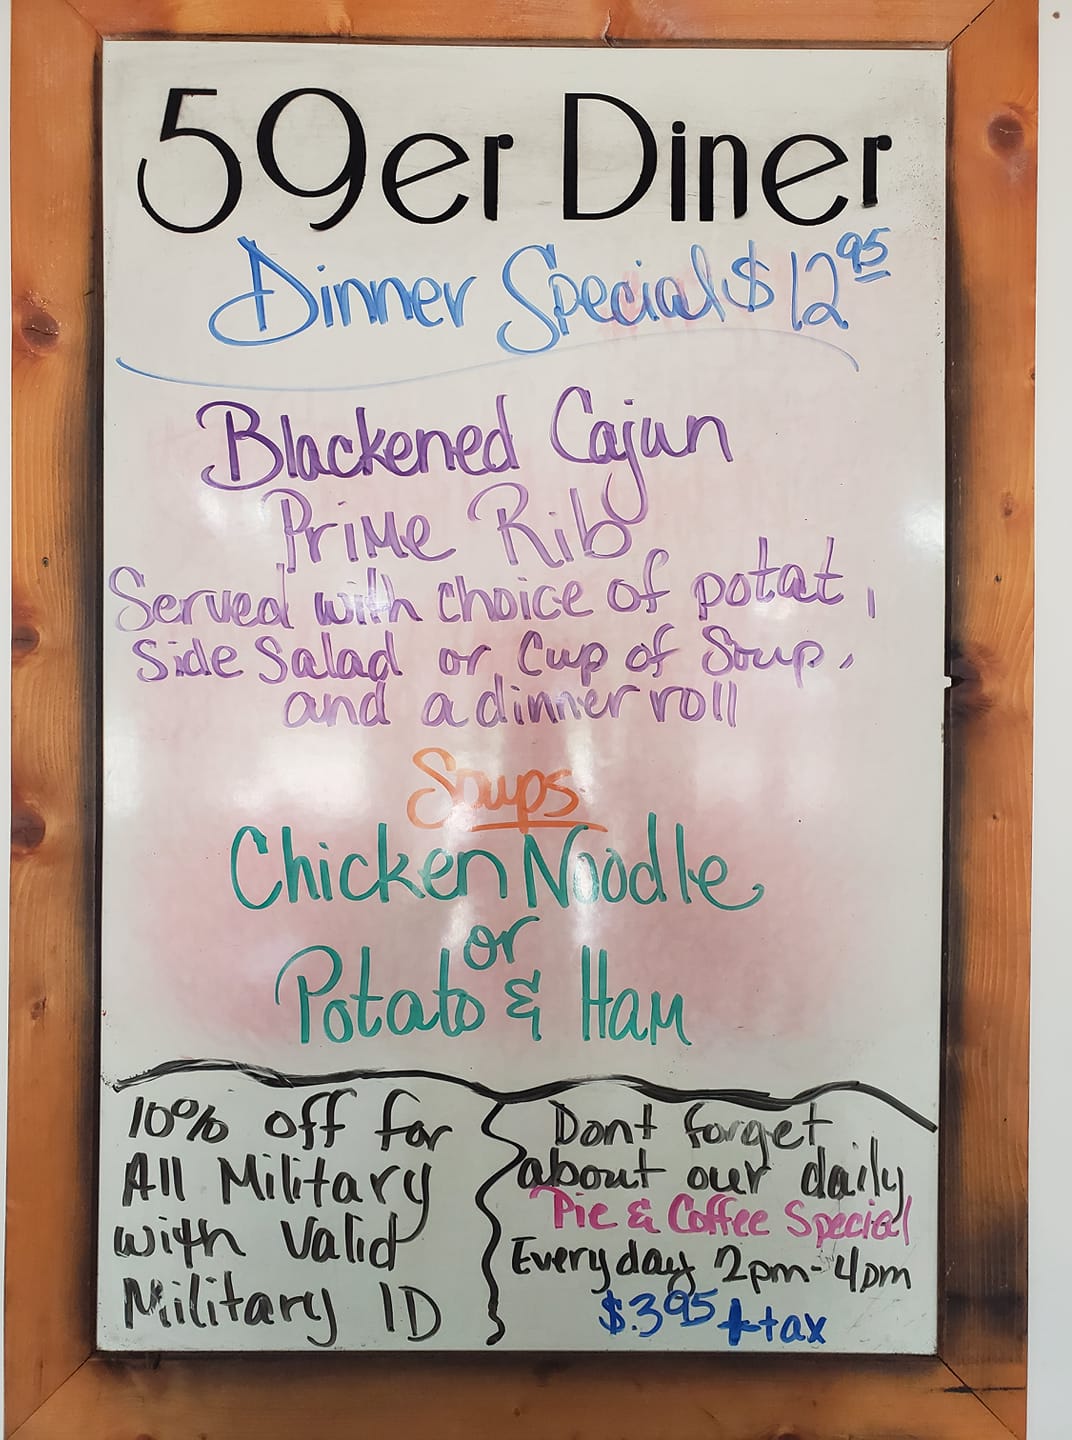 59er Diner
Dinner Special $12.95
Blackened Cajun
Prime Rib
Served with choice of potat,
Side Salad or Cup of Soup,
and a dinner roll
Soups
Chicken Noodle
or
Potato & Ham
10% off for
All Military
with Valid
Military ID
Dont forget
about our daily
Pie & Coffee Special
Everyday 2pm-4pm
$3.95 + tax